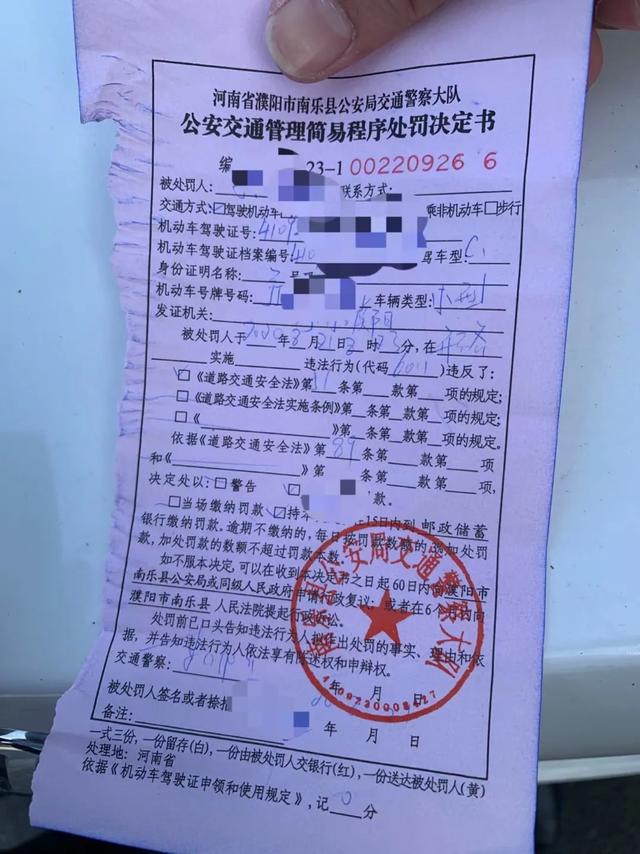 河南省濮阳市南乐县公安局交通警察大队
公安交通管理简易程序处罚决定书
编 23-1 00220926 6
被处罚人: 联系方式:
交通方式:☑驾驶机动车 乘非机动车□步行
机动车驾驶证号:4109
机动车驾驶证档案编号:410 驾车型:C1
身份证明名称:
机动车号牌号码: 车辆类型:小型
发证机关:
被处罚人于2020年8月21日 时 分,在
实施 违法行为(代码6011)违反了:
☑《道路交通安全法》第 条第 款第 项的规定;
□《道路交通安全法实施条例》第 条第 款第 项的规定;
□《 》第 条第 款第 项的规定。
依据《道路交通安全法》第89条第 款第 项
和《 》第 条第 款第 项
决定处以:☑警告
□当场缴纳罚款 ☑持 15日内到邮政储蓄
银行缴纳罚款。逾期不缴纳的,每日按罚款数额的 加处罚
款,加处罚款的数额不超过罚款本数。
如不服本决定,可以在收到本决定书之日起60日内向濮阳市
南乐县公安局或同级人民政府申请行政复议;或者在6个月内向
濮阳市南乐县 人民法院提起行政诉讼。
处罚前已口头告知违法行为人拟作出处罚的事实、理由和依
据,并告知违法行为人依法享有陈述权和申辩权。
交通警察: 年 月 日
被处罚人签名或者捺指
备注: 年 月 日
一式三份,一份留存(白),一份由被处罚人交银行(红),一份送达被处罚人(黄)
处理地:河南省
依据《机动车驾驶证申领和使用规定》,记0分